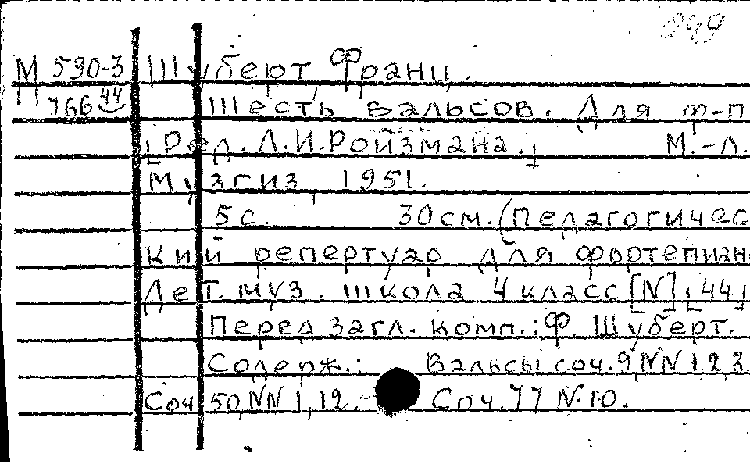 899
М 590-3 Шуберт, Франц.
766 44 Шесть вальсов. Для ф-п
[Ред. Л.И. Ройзмана.] М.-Л.
Музгиз, 1951.
5 с. 30 см. (Педагогичес-
кий репертуар для фортепиано
Дет. муз. школа 4 класс [N] [44]
Перед загл. комп.: Ф. Шуберт.
Содерж.: Вальсы соч. 9 NN 1 2 3
Соч 50 NN 1, 12. Соч. 77 N. 10.